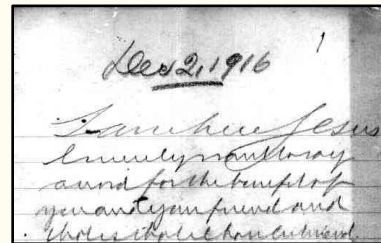 1
Dec 2, 1916
I am here Jesus
I merely want to say
a word for the benefit of
you and your friend and
that is that